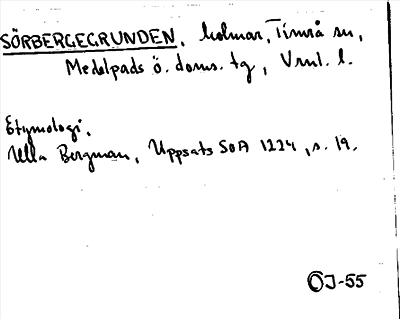 SÖRBERGEGRUNDEN, holmar, Timrå sn,
Medelpads ö. doms. tg, Vrnl. l.
Etymologi.
Ulla Bergman, Uppsats SOA 1224, s. 19.
OJ-55